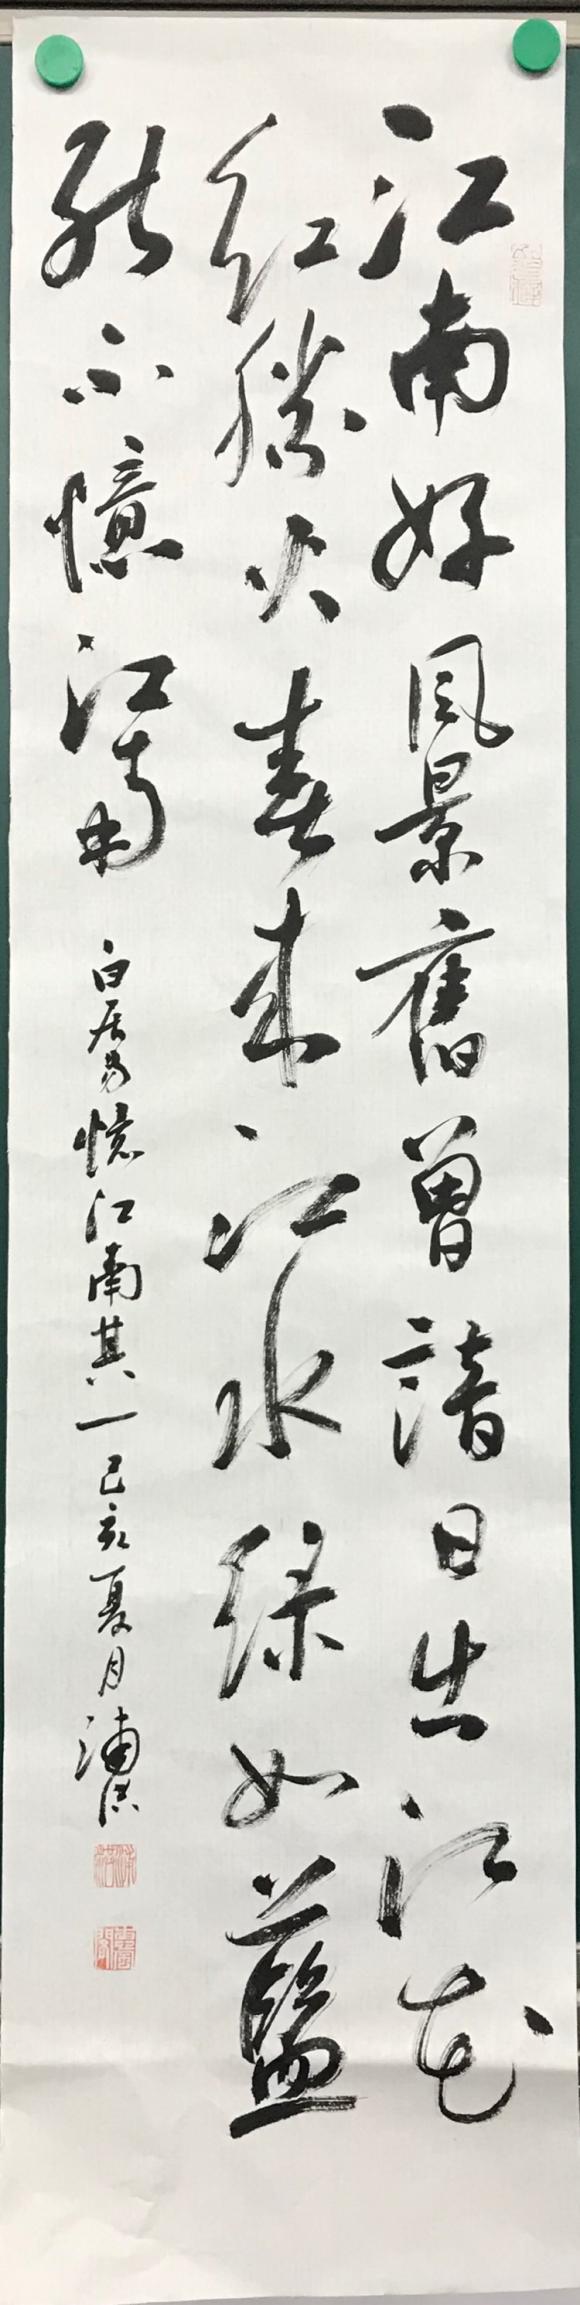 江南好風景舊曾諳日出江花
紅勝火春來江水綠如藍
能不憶江南 白居易憶江南其一 己亥夏月 浦